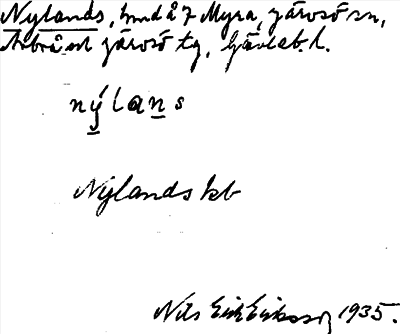 Nylands, hmd å 7 Myra, Järvsö sn,
Arbrå Järvsö tg, Gävleb. l.
nýlans
Nylands kb
Nils Erik Eriksson 1935.